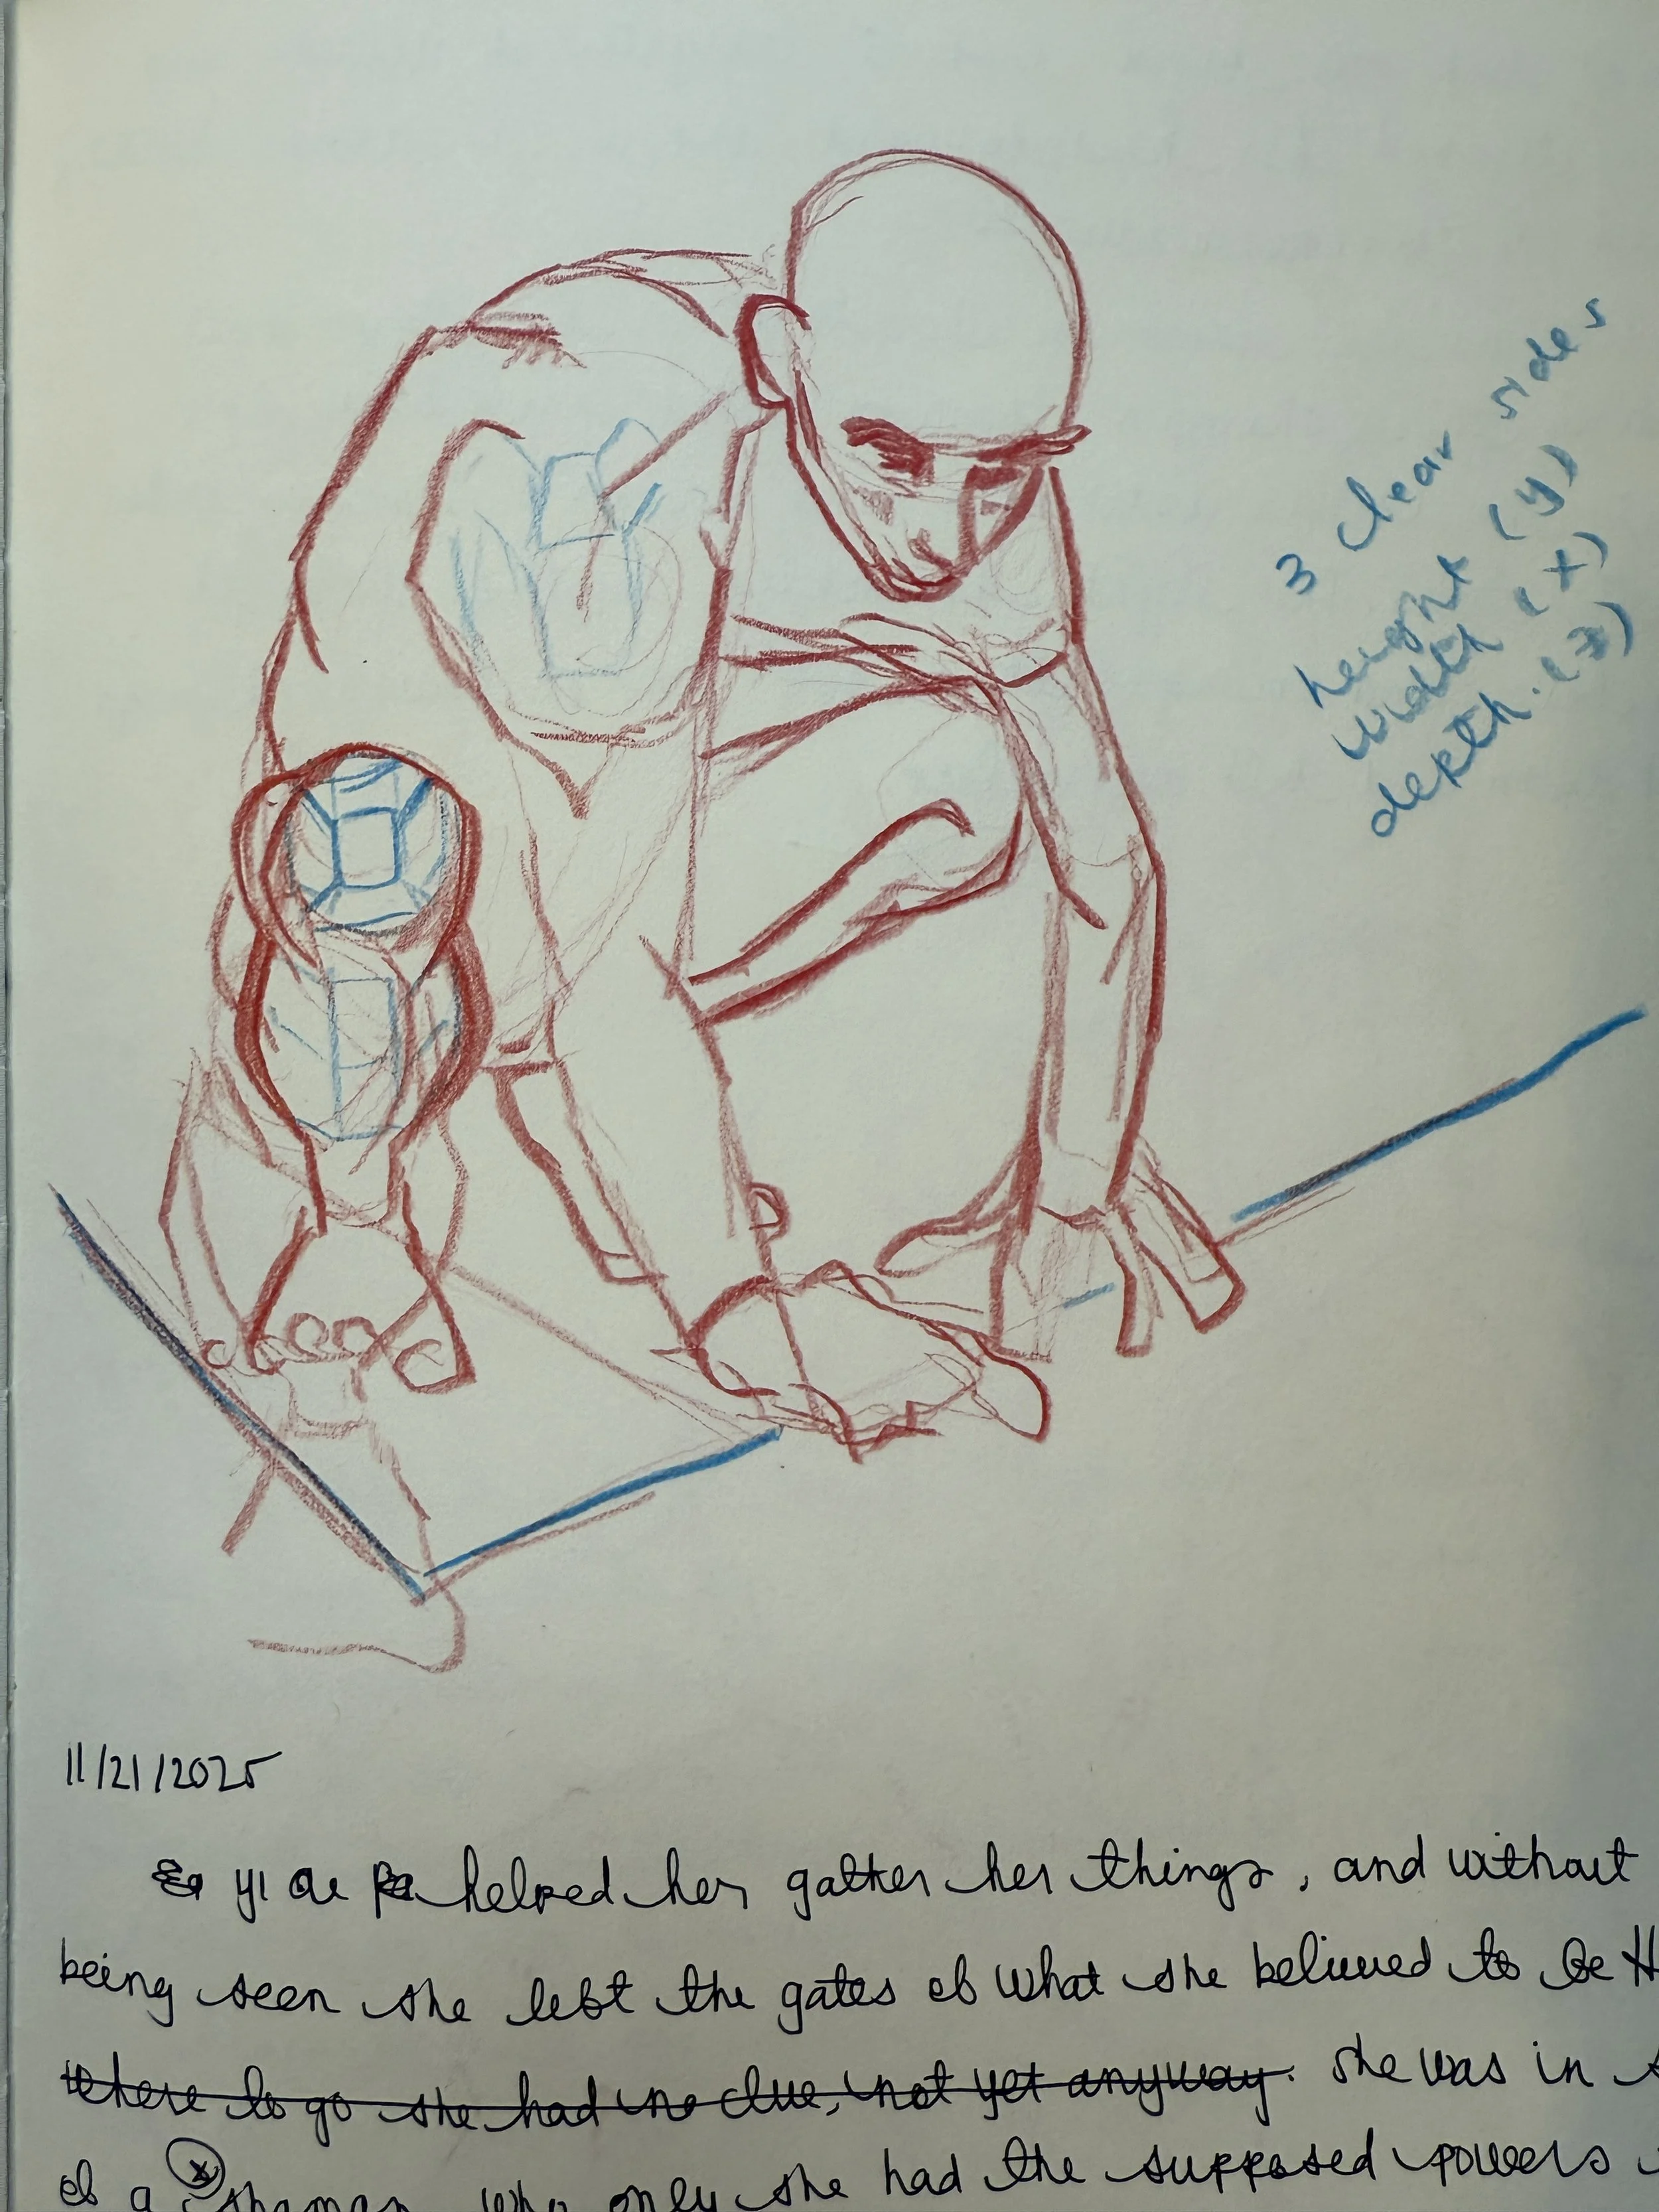 3 clear sides
height (y)
width (x)
depth. (z)
11/21/2025
helped her gather her things, and without
being seen she left the gates of what she believed to be
where to go she had no clue, not yet anyway. she was in
of a shaman, who only she had the supposed powers